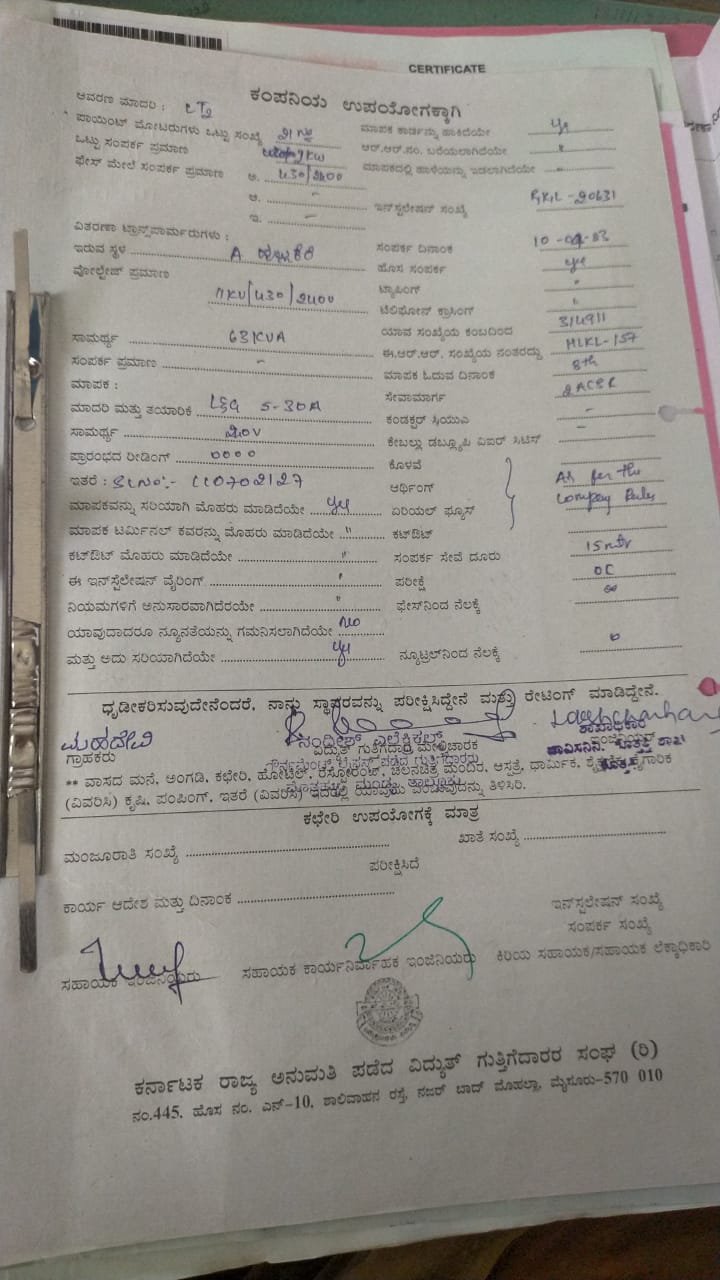 CERTIFICATE
ಕಂಪನಿಯ ಉಪಯೋಗಕ್ಕಾಗಿ
ಆವರಣ ಮಾದರಿ :
ಪಾಯಿಂಟ್ ಮೋಟರುಗಳು ಒಟ್ಟು ಸಂಖ್ಯೆ
ಮಾಪಕ ಕಾರ್ಡನ್ನು ಹಾಕಿದೆಯೇ yes
ಒಟ್ಟು ಸಂಪರ್ಕ ಪ್ರಮಾಣ
ಆರ್.ಆರ್.ನಂ. ಬರೆಯಲಾಗಿದೆಯೇ "
ಫೇಸ್ ಮೇಲೆ ಸಂಪರ್ಕ ಪ್ರಮಾಣ ಅ. 430/2400
ಮಾಪಕದಲ್ಲಿ ಹಾಳೆಯನ್ನು ಇಡಲಾಗಿದೆಯೇ "
ಆ. -
ಇ. -
ಇನ್‌ಸ್ಟಲೇಷನ್ ಸಂಖ್ಯೆ 20631
ವಿತರಣಾ ಟ್ರಾನ್ಸ್‌ಪಾರ್ಮರುಗಳು :
ಇರುವ ಸ್ಥಳ A
ಸಂಪರ್ಕ ದಿನಾಂಕ
ವೋಲ್ಟೇಜ್ ಪ್ರಮಾಣ 11KV/430/2400
ಹೊಸ ಸಂಪರ್ಕ yes
ಟ್ಯಾಪಿಂಗ್ "
ಟೆಲಿಫೋನ್ ಕ್ರಾಸಿಂಗ್ "
ಸಾಮರ್ಥ್ಯ 63KVA
ಯಾವ ಸಂಖ್ಯೆಯ ಕಂಬದಿಂದ 3/4911
ಸಂಪರ್ಕ ಪ್ರಮಾಣ -
ಈ.ಆರ್.ಆರ್. ಸಂಖ್ಯೆಯ ನಂತರದ್ದು MLKL-157
ಮಾಪಕ :
ಮಾಪಕ ಓದುವ ದಿನಾಂಕ 8th
ಮಾದರಿ ಮತ್ತು ತಯಾರಿಕೆ L&G 5-30A
ಸೇವಾಮಾರ್ಗ 2 ACSR
ಸಾಮರ್ಥ್ಯ
ಕಂಡಕ್ಟರ್ -
ಪ್ರಾರಂಭದ ರೀಡಿಂಗ್ 0000
ಕೇಬಲ್ಲು ಡಬ್ಲ್ಯೂಪಿ ವಿಐರ್ -
ಇತರೆ :
ಕೊಳವೆ
ಆರ್ಥಿಂಗ್ As per the
ಮಾಪಕವನ್ನು ಸರಿಯಾಗಿ ಮೊಹರು ಮಾಡಿದೆಯೇ yes
ಏರಿಯಲ್ ಫ್ಯೂಸ್ Company Rules
ಮಾಪಕ ಟರ್ಮಿನಲ್ ಕವರನ್ನು ಮೊಹರು ಮಾಡಿದೆಯೇ "
ಕಟ್‌ಔಟ್
ಕಟ್‌ಔಟ್ ಮೊಹರು ಮಾಡಿದೆಯೇ "
ಸಂಪರ್ಕ ಸೇವೆ ದೂರು 15mtr
ಈ ಇನ್‌ಸ್ಟಲೇಷನ್ ವೈರಿಂಗ್ "
ಪರೀಕ್ಷೆ OC
ನಿಯಮಗಳಿಗೆ ಅನುಸಾರವಾಗಿದೆರೆಯೇ "
ಫೇಸ್‌ನಿಂದ ನೆಲಕ್ಕೆ ∞
ಯಾವುದಾದರೂ ನ್ಯೂನತೆಯನ್ನು ಗಮನಿಸಲಾಗಿದೆಯೇ No
ಮತ್ತು ಅದು ಸರಿಯಾಗಿದೆಯೇ yes
ನ್ಯೂಟ್ರಲ್‌ನಿಂದ ನೆಲಕ್ಕೆ 0
ಧೃಡೀಕರಿಸುವುದೇನೆಂದರೆ, ನಾನು ಸ್ಥಾವರವನ್ನು ಪರೀಕ್ಷಿಸಿದ್ದೇನೆ ಮತ್ತು ರೇಟಿಂಗ್ ಮಾಡಿದ್ದೇನೆ.
ಮಹದೇವಿ
ಗ್ರಾಹಕರು
ನಂದೀಶ್ ಎಲೆಕ್ಟ್ರಿಕಲ್ಸ್
ವಿದ್ಯುತ್ ಗುತ್ತಿಗೆದಾರ ಮೇಲ್ವಿಚಾರಕ
ಶಾಖಾಧಿಕಾರಿ
** ವಾಸದ ಮನೆ, ಅಂಗಡಿ, ಕಛೇರಿ, ಹೋಟೆಲ್, ರೆಸ್ಟೋರೆಂಟ್, ಚಲನಚಿತ್ರ ಮಂದಿರ, ಆಸ್ಪತ್ರೆ, ಧಾರ್ಮಿಕ,
(ವಿವರಿಸಿ) ಕೃಷಿ, ಪಂಪಿಂಗ್, ಇತರೆ (ವಿವರಿಸಿ) ಇದರಲ್ಲಿ ಯಾವುದು ಎಂಬುವುದನ್ನು ತಿಳಿಸಿರಿ.
ಕಛೇರಿ ಉಪಯೋಗಕ್ಕೆ ಮಾತ್ರ
ಮಂಜೂರಾತಿ ಸಂಖ್ಯೆ
ಖಾತೆ ಸಂಖ್ಯೆ
ಪರೀಕ್ಷಿಸಿದೆ
ಕಾರ್ಯ ಆದೇಶ ಮತ್ತು ದಿನಾಂಕ
ಇನ್‌ಸ್ಟಲೇಷನ್ ಸಂಖ್ಯೆ
ಸಂಪರ್ಕ ಸಂಖ್ಯೆ
ಸಹಾಯಕ ಇಂಜಿನಿಯರು
ಸಹಾಯಕ ಕಾರ್ಯನಿರ್ವಾಹಕ ಇಂಜಿನಿಯರು
ಕಿರಿಯ ಸಹಾಯಕ/ಸಹಾಯಕ ಲೆಕ್ಕಾಧಿಕಾರಿ
ಕರ್ನಾಟಕ ರಾಜ್ಯ ಅನುಮತಿ ಪಡೆದ ವಿದ್ಯುತ್ ಗುತ್ತಿಗೆದಾರರ ಸಂಘ (ರಿ)
ನಂ.445, ಹೊಸ ನಂ. ಎನ್-10, ಶಾಲಿವಾಹನ ರಸ್ತೆ, ನಜರ್ ಬಾದ್ ಮೊಹಲ್ಲಾ, ಮೈಸೂರು-570 010